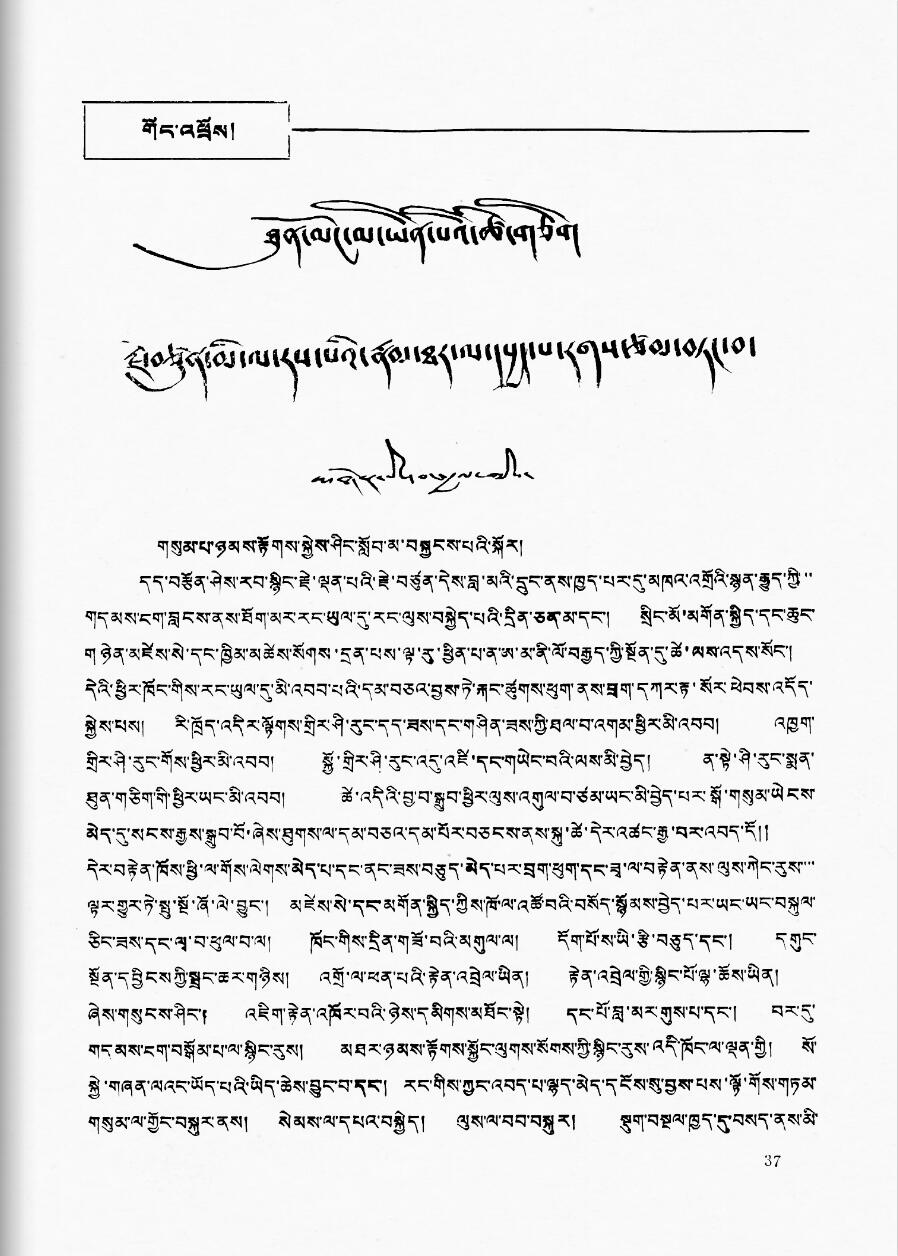 གོང་འཕྲོས།
གསུམ་པ་ཉམས་རྟོགས་སྐྱེས་ཤིང་སློབ་མ་བསྐྱངས་པའི་སྐོར།
དད་བརྩོན་ཤེས་རབ་སྙིང་རྗེ་ལྡན་པའི་རྗེ་བཙུན་དེས་བླ་མའི་དྲུང་ནས་ཁྱད་པར་དུ་མཁའ་འགྲོའི་སྙན་རྒྱུད་ཀྱི་
གདམས་ངག་བླངས་ནས་ཐོག་མར་རང་ཡུལ་དུ་རང་ལུས་བསྐྱེད་པའི་དྲིན་ཅན་མ་དང་། སྲིང་མོ་མགོན་སྐྱིད་དང་ཆུང་
ག་ཉེན་མཛེས་སེ་དང་ཁྱིམ་མཚེས་སོགས་དྲན་པས་ལྟ་རུ་ཕྱིན་པ་ན་ཨ་མ་ནི་ལོ་བརྒྱད་ཀྱི་སྔོན་དུ་ཚེ་ལས་འདས་སོང་།
དེའི་ཕྱིར་ཁོང་གིས་རང་ཡུལ་དུ་མི་འབབ་པའི་དམ་བཅའ་བྱས་ཏེ་རྐང་ཚུགས་ཕུག་ནས་བྲག་དཀར་རྟ་སོར་ཕེབས་འདོད་
སྐྱེས་པས། རི་ཁྲོད་འདིར་ལྟོགས་གྲིར་ཤི་རུང་དད་ཟས་དང་གཤིན་ཟས་ཀྱི་ཐལ་བ་འགམ་ཕྱིར་མི་འབབ། འཁྱག་
གྲིར་ཤི་རུང་གོས་ཕྱིར་མི་འབབ། སྐྱོ་གྲིར་ཤི་རུང་འདུ་འཛི་དང་གཡེང་བའི་ལས་མི་བྱེད། ན་སྟེ་ཤི་རུང་སྨན་
ཐུན་གཅིག་གི་ཕྱིར་ཡང་མི་འབབ། ཚེ་འདིའི་བྱ་བ་སྒྲུབ་ཕྱིར་ལུས་འགུལ་བ་ཙམ་ཡང་མི་བྱེད་པར་སྒོ་གསུམ་ཡེངས་
མེད་དུ་སངས་རྒྱས་སྒྲུབ་བོ་ཞེས་ཐུགས་ལ་དམ་བཅའ་དམ་པོར་བཅངས་ནས་སྐུ་ཚེ་དེར་འཚང་རྒྱ་བར་འབད་དོ།།
དེར་བརྟེན་ཁོས་ཕྱི་ལ་གོས་ལེགས་མེད་པ་དང་ནང་ཟས་བཅུད་མེད་པར་བྲག་ཕུག་དང་ཟྭ་ལ་བརྟེན་ནས་ལུས་ཀེང་རུས་
ལྟར་གྱུར་ཏེ་སྤུ་སྔོ་ཞོ་ལེ་བྱུང་། མཛེས་སེ་དང་མགོན་སྐྱིད་ཀྱིས་ཁོ་ལ་འཚོ་བའི་བསོད་སྙོམས་བྱེད་པར་ཡང་ཡང་བསྐུལ་
ཅིང་ཟས་དང་ལྭ་བ་ཕུལ་བ་ལ། ཁོང་གིས་དྲིན་གཟོ་བའི་མགུལ་ལ། དོག་པོ་ས་ཡི་རྩི་བཅུད་དང་། དགུང་
སྔོན་ད་བྱིངས་ཀྱི་སྦྲང་ཆར་གཉིས། འགྲོ་ལ་ཕན་པའི་རྟེན་འབྲེལ་ཡིན། རྟེན་འབྲེལ་གྱི་སྙིང་པོ་ལྷ་ཆོས་ཡིན།
ཞེས་གསུངས་ཤིང་། འཇིག་རྟེན་འཁོར་བའི་ཉེས་དམིགས་མཐོང་སྟེ། དང་པོ་བླ་མར་གུས་པ་དང་། བར་དུ་
གདམས་ངག་བསྒོམ་པ་ལ་སྙིང་རུས། མཐར་ཉམས་རྟོགས་སྐྱོང་ལུགས་སོགས་ཀྱི་སྙིང་རུས་འདི་ཁོང་ལ་ལྡན་གྱི། སོ་
སྐྱེ་གཞན་ལའང་ཡོད་པའི་ཡིད་ཆེས་བྱུང་བ་དང་། རང་གིས་ཀྱང་འབད་པ་ལྷད་མེད་དངོས་སུ་བྱས་པས་ལྟོ་གོས་གཏམ་
གསུམ་ལ་གྱོང་བསྐུར་ནས། སེམས་ལ་དཔའ་བསྐྱེད། ལུས་ལ་བབ་བསྐུར། སྡུག་བསྔལ་ཁྱད་དུ་བསད་ནས་མི་
37